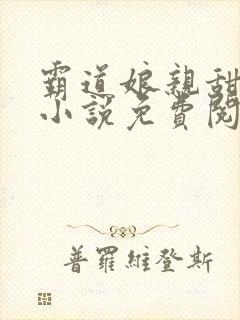 霸道娘親甜
小說免費閱
普羅維登斯